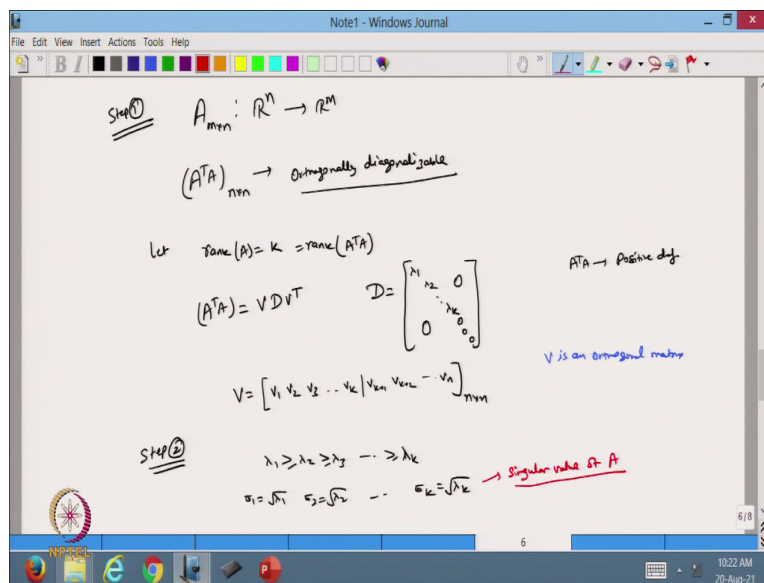 Note1 - Windows Journal
File Edit View Insert Actions Tools Help
B I
Step ① A_{m×n} : ℝⁿ → ℝᵐ
(AᵀA)_{n×n} → Orthogonally diagonalizable
let rank(A) = K = rank(AᵀA)
AᵀA → Positive def
(AᵀA) = V D Vᵀ D = [λ₁ λ₂ ⋱ λₖ 0 0 0 0 0]
V is an orthogonal matrix
V = [v₁ v₂ v₃ .. vₖ | vₖ₊₁ vₖ₊₂ -- vₙ]_{n×n}
Step ② λ₁ ≥ λ₂ ≥ λ₃ --- ≥ λₖ
σ₁ = √λ₁ σ₂ = √λ₂ -- σₖ = √λₖ → Singular value of A
6/8
NPTEL
6
10:22 AM
20-Aug-21